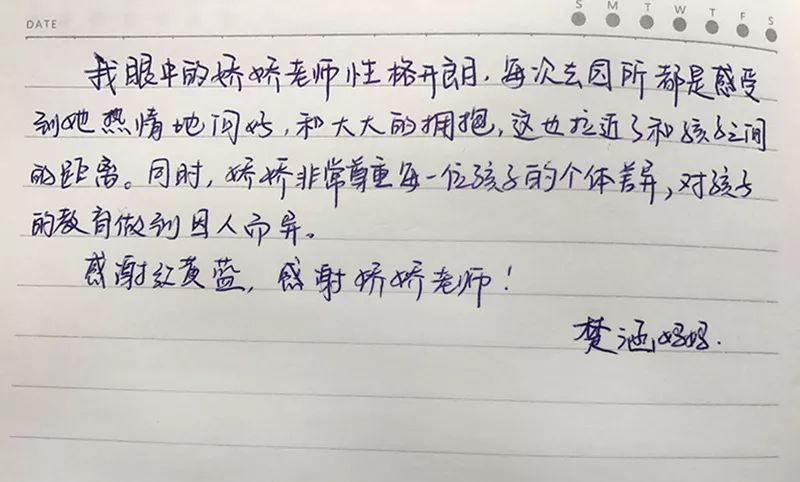 DATE
S M T W T F S
我眼中的娇娇老师性格开朗,每次去园所都是感受
到她热情地问好,和大大的拥抱,这也拉近了和孩子之间
的距离。同时,娇娇非常尊重每一位孩子的个体差异,对孩子
的教育做到因人而异。
感谢红黄蓝,感谢娇娇老师!
楚涵妈妈.